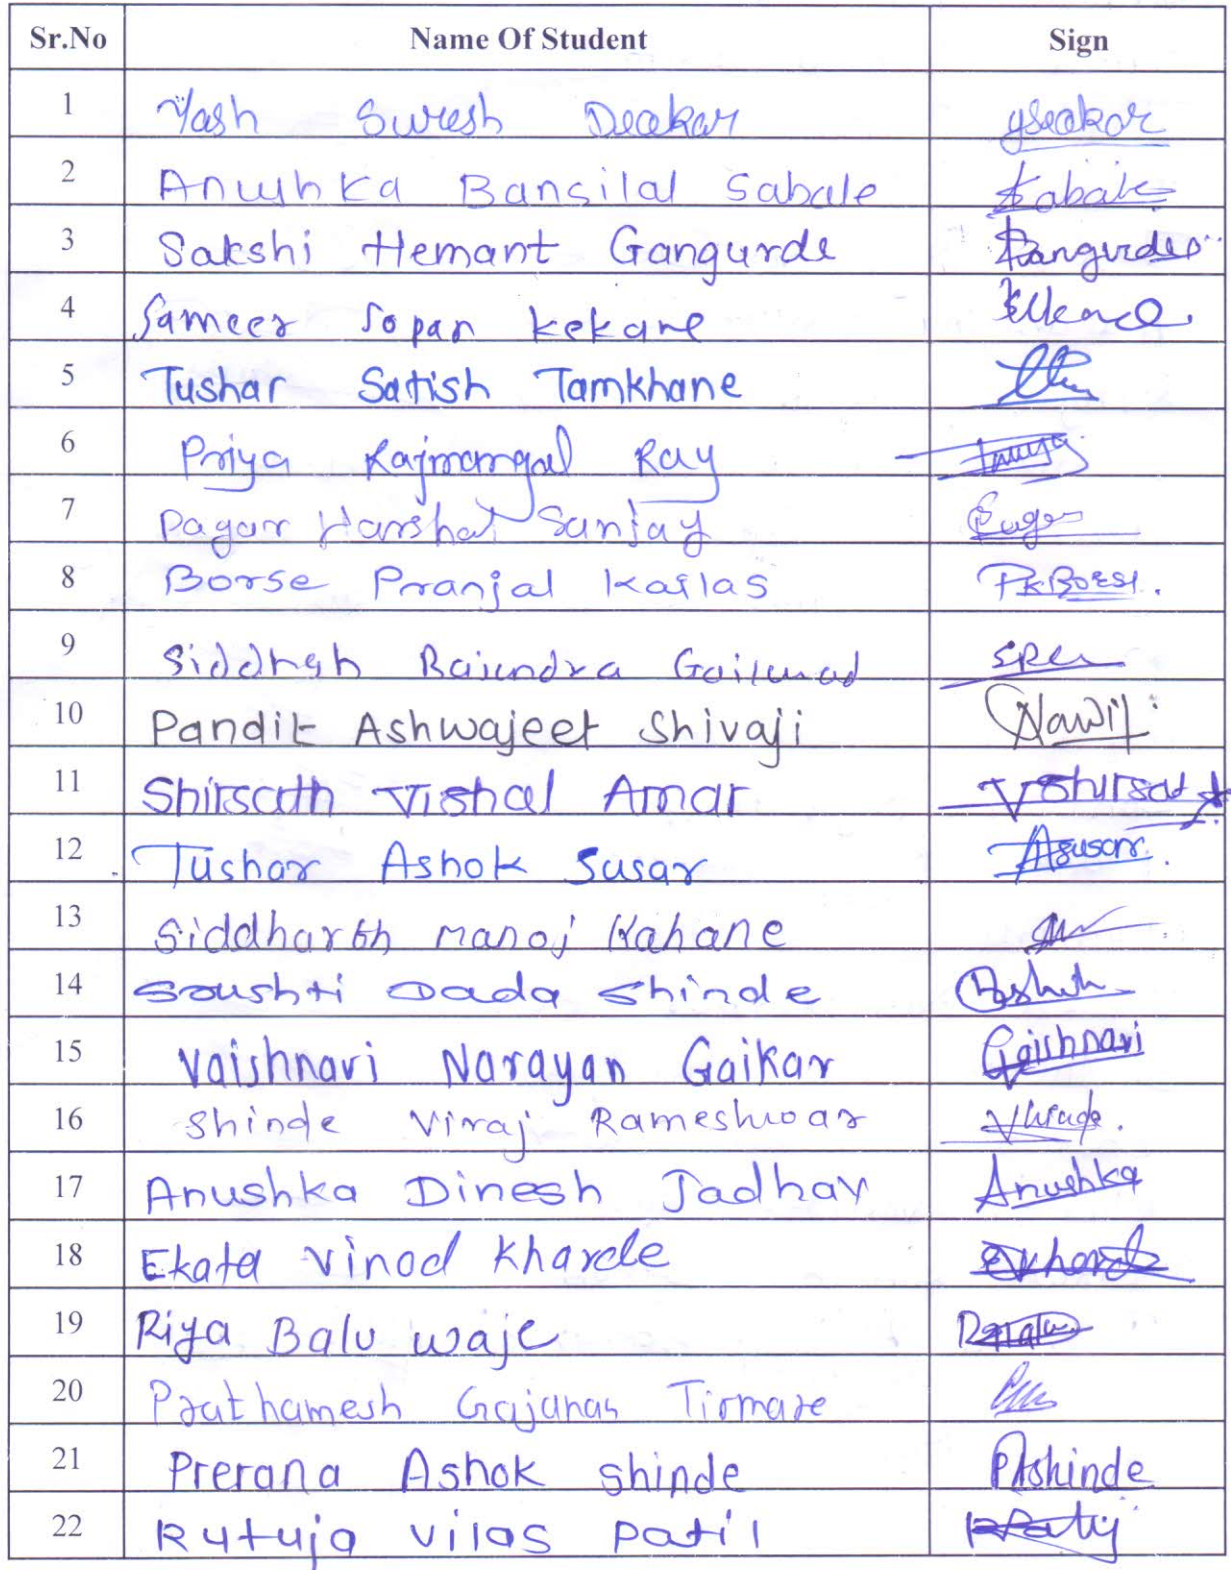 Sr.No Name Of Student Sign
1 Yash Suresh Deokar
2 Anushka Bansilal Sabale Sabale
3 Sakshi Hemant Gangurde Gangurde
4 Sameer Sopan kekane
5 Tushar Satish Tamkhane
6 Priya Rajmangal Ray
7 Pagar Harshal Sanjay
8 Borse Pranjal Kailas PKBorse.
9 Siddhesh Rajendra Gaikwad
10 Pandit Ashwajeet Shivaji
11 Shirsath Vishal Amar VShirsat
12 Tushar Ashok Susar Asusar.
13 Siddharth Manoj Kahane
14 Srushti Dada Shinde
15 Vaishnavi Narayan Gaikar Gaishnavi
16 Shinde Viraj Rameshwar
17 Anushka Dinesh Jadhav Anushka
18 Ekata Vinod Kharde
19 Riya Balu waje
20 Prathamesh Gajanan Tirmare
21 Prerana Ashok shinde PAshinde
22 Rutuja vilas patil